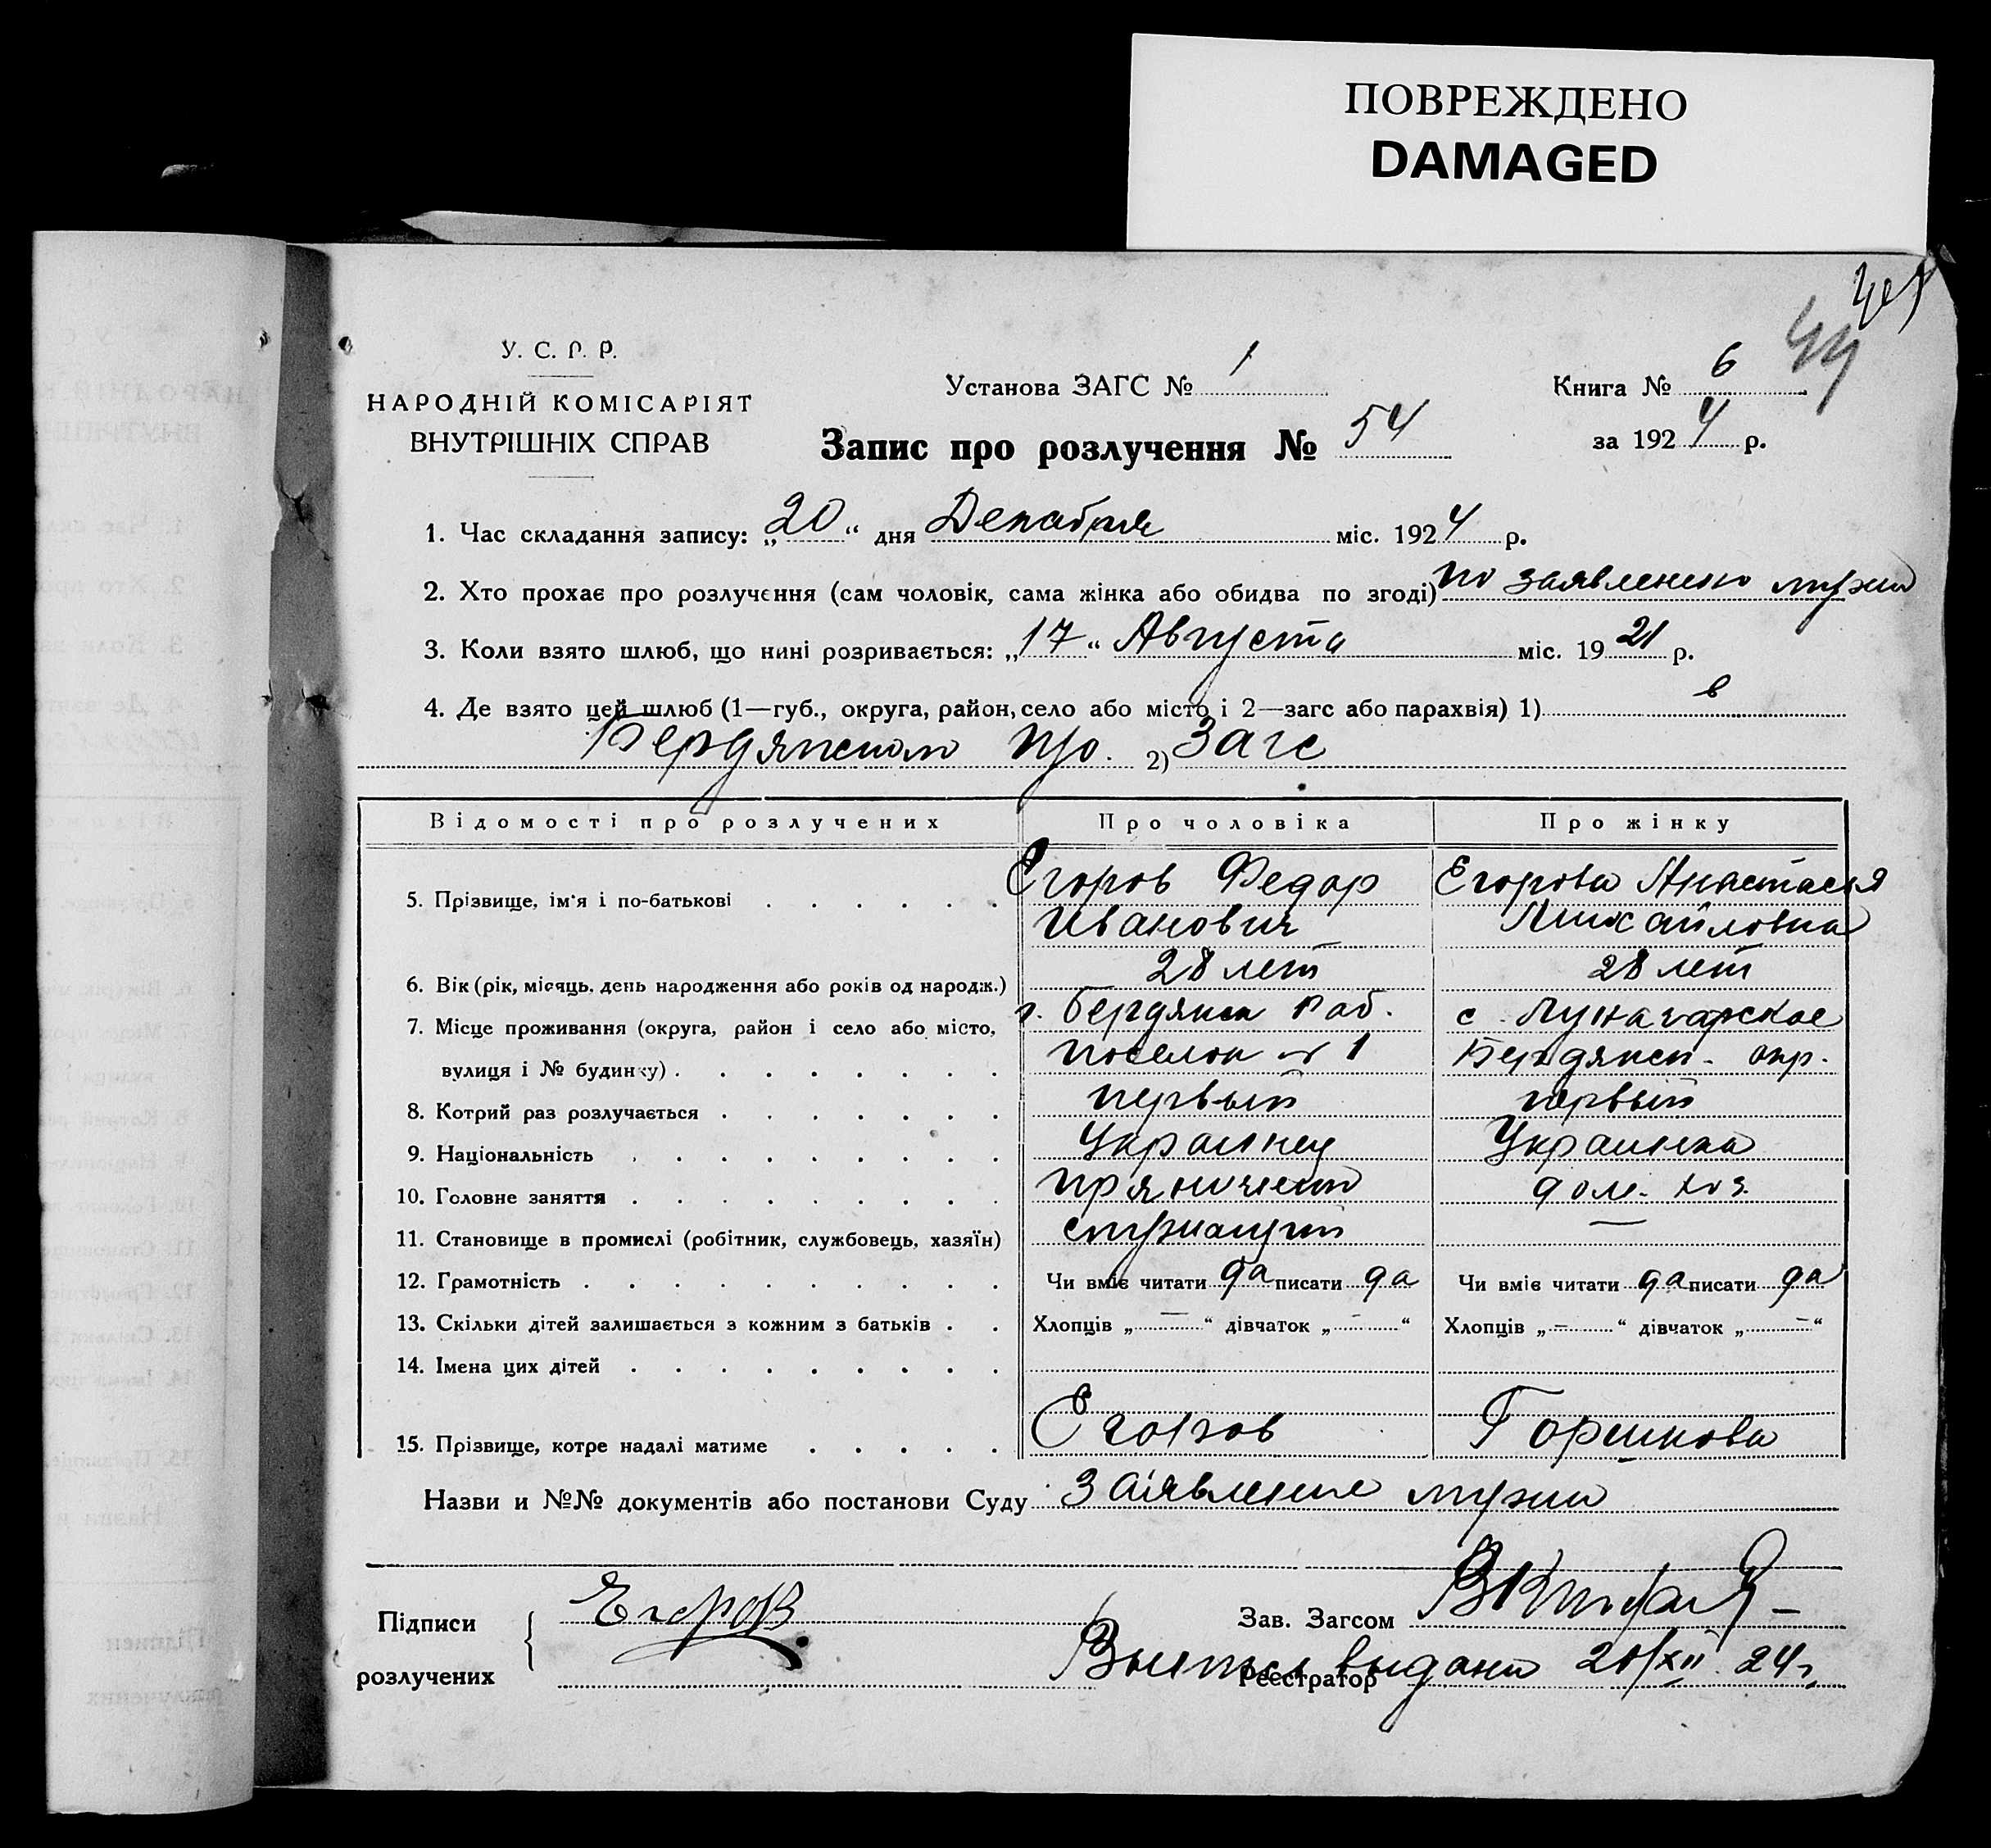 ПОВРЕЖДЕНО
DAMAGED
49
У. С. Р. Р.
НАРОДНІЙ КОМІСАРІЯТ
ВНУТРІШНІХ СПРАВ
Установа ЗАГС № 1
Книга № 6
Запис про розлучення № 54
за 1924 р.
1. Час складання запису: „20“ дня Декабря міс. 1924 р.
2. Хто прохає про розлучення (сам чоловік, сама жінка або обидва по згоді) по заявлению мужа
3. Коли взято шлюб, що нині розривається: „17“ Августа міс. 1921 р.
4. Де взято цей шлюб (1—губ., округа, район, село або місто і 2—загс або парахвія) 1) в
Бердянском 2) Загс
Відомості про розлучених Про чоловіка Про жінку
5. Прізвище, ім'я і по-батькові Егоров Федор Егорова Анастасия
Иванович Михайловна
6. Вік (рік, місяць, день народження або років од народж.) 28 лет 28 лет
7. Місце проживання (округа, район і село або місто, г. Бердянск Раб. с. Луначарское
вулиця і № будинку) поселок № 1 Бердянск. окр.
8. Котрий раз розлучається первый первый
9. Національність Украинец Украинка
10. Головне заняття дом. хоз.
11. Становище в промислі (робітник, службовець, хазяїн) служащий —
12. Грамотність Чи вміє читати да писати да Чи вміє читати да писати да
13. Скільки дітей залишається з кожним з батьків Хлопців „—“ дівчаток „—“ Хлопців „—“ дівчаток „—“
14. Імена цих дітей
15. Прізвище, котре надалі матиме Егоров Горшкова
Назви и №№ документів або постанови Суду Заявление мужа
Підписи Егоров Зав. Загсом
розлучених Реєстратор
Выпись выдана 20/XII 24 г.